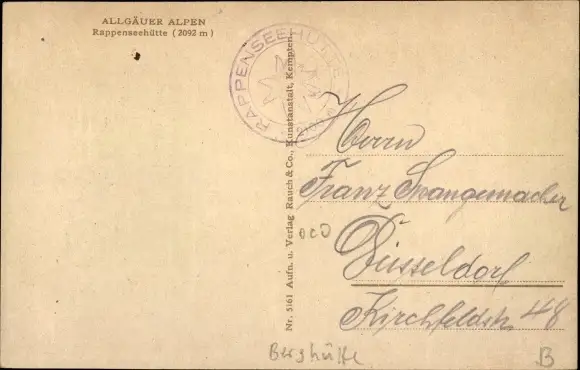 ALLGÄUER ALPEN
Rappenseehütte (2092 m)
RAPPENSEEHÜTTE
Nr. 5161 Aufn. u. Verlag Rauch & Co., Kunstanstalt, Kempten
Herrn
Franz Spangemacher
Düsseldorf
Kirchfeldstr. 48
Berghütte
B